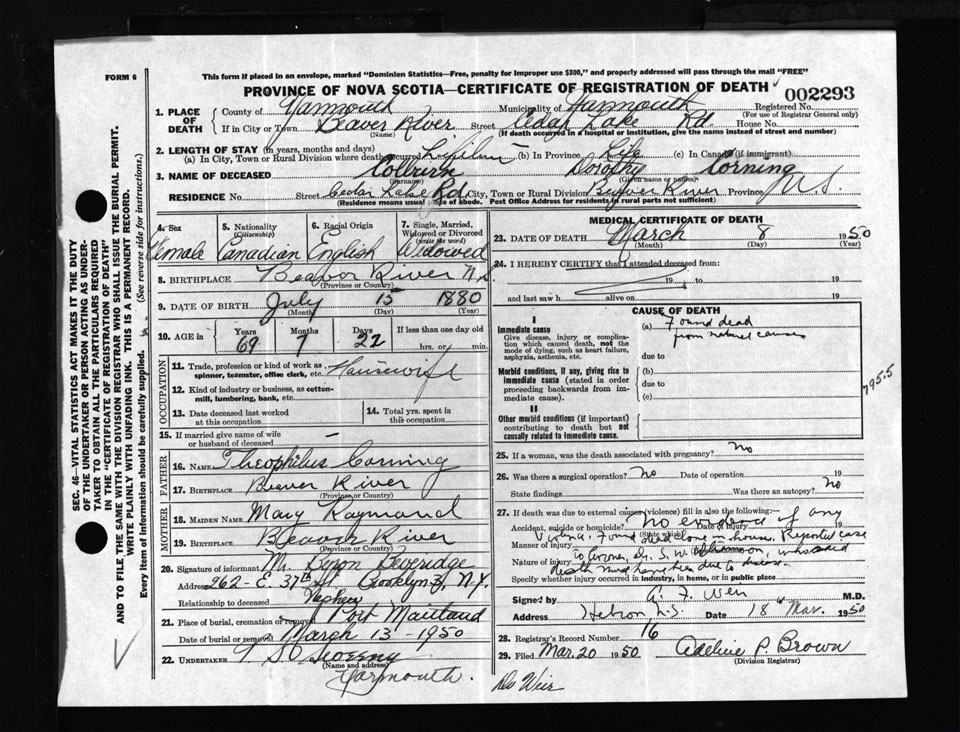 FORM 6
This form if placed in an envelope, marked "Dominion Statistics—Free, penalty for improper use $300," and properly addressed will pass through the mail "FREE"
PROVINCE OF NOVA SCOTIA—CERTIFICATE OF REGISTRATION OF DEATH
002293
1. PLACE OF DEATH
County of Yarmouth Municipality of Yarmouth Registered No.
(For use of Registrar General only)
If in City or Town Beaver River Street Cedar Lake Rd House No.
(Name) (If death occurred in hospital or institution, give the name instead of street and number)
2. LENGTH OF STAY (in years, months and days)
(a) In City, Town or Rural Division where death occurred Lifetime (b) In Province Life (c) In Canada (if immigrant)
3. NAME OF DECEASED Dorothy Corning
(Surname) (Given name or names)
RESIDENCE No. Street Cedar Lake Rd. City, Town or Rural Division Beaver River Province N.S
(Residence means usual place of abode. Post Office Address for residents in rural parts not sufficient)
4. Sex Female
5. Nationality (Citizenship) Canadian
6. Racial Origin English
7. Single, Married, Widowed or Divorced (write the word) Widowed
8. BIRTHPLACE Beaver River N.S
(Province or Country)
9. DATE OF BIRTH July 15 1880
(Month) (Day) (Year)
10. AGE in Years 69 Months 7 Days 22 If less than one day old hrs. or min.
OCCUPATION
11. Trade, profession or kind of work as spinner, teamster, office clerk, etc. Housewife
12. Kind of industry or business, as cotton-mill, lumbering, bank, etc.
13. Date deceased last worked at this occupation
14. Total yrs. spent in this occupation
15. If married give name of wife or husband of deceased —
FATHER
16. NAME Theophilus Corning
17. BIRTHPLACE Beaver River
(Province or Country)
MOTHER
18. MAIDEN NAME Mary Raymond
19. BIRTHPLACE Beaver River
(Province or Country)
20. Signature of informant Mr. Byron Beveridge
Address 262-E. 37th St. Brooklyn N.Y.
Relationship to deceased Nephew
21. Place of burial, cremation or removal Port Maitland
Date of burial or removal March 13-1950
22. UNDERTAKER
(Name and address)
Yarmouth.
MEDICAL CERTIFICATE OF DEATH
23. DATE OF DEATH March 8 1950
(Month) (Day) (Year)
24. I HEREBY CERTIFY that I attended deceased from:
19 to 19
and last saw h alive on 19
CAUSE OF DEATH
I
Immediate cause
Give disease, injury or complication which caused death, not the mode of dying, such as heart failure, asphyxia, asthenia, etc.
(a) Found dead
from natural causes
due to
Morbid conditions, if any, giving rise to immediate cause (stated in order proceeding backwards from immediate cause).
(b)
due to
(c)
795.5
II
Other morbid conditions (if important) contributing to death but not causally related to immediate cause.
25. If a woman, was the death associated with pregnancy? No
26. Was there a surgical operation? No Date of operation 19
State findings Was there an autopsy? No
27. If death was due to external causes (violence) fill in also the following:—
Accident, suicide or homicide? Date of injury 19
(State which)
No evidence of any
Manner of injury
Violence. Found dead alone in house. Reported case
Nature of injury
to Coroner, Dr. S. W. who said
death must have been due to disease.
Specify whether injury occurred in industry, in home, or in public place
Signed by A. F. Weir M.D.
Address Hebron N.S. Date 18 Mar. 1950
28. Registrar's Record Number 16
29. Filed Mar. 20 1950 Adeline P. Brown
(Division Registrar)
Dr Weir
SEC. 46—VITAL STATISTICS ACT MAKES IT THE DUTY
OF THE UNDERTAKER OR PERSON ACTING AS UNDERTAKER TO OBTAIN ALL THE PARTICULARS REQUIRED
IN THE "CERTIFICATE OF REGISTRATION OF DEATH"
AND TO FILE THE SAME WITH THE DIVISION REGISTRAR WHO SHALL ISSUE THE BURIAL PERMIT.
WRITE PLAINLY WITH UNFADING INK. THIS IS A PERMANENT RECORD.
Every item of information should be carefully supplied. (See reverse side for instructions.)